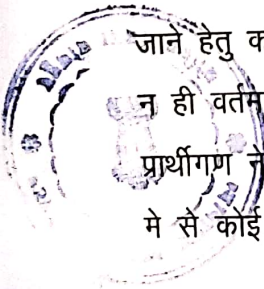 जाने हेतु क
न ही वर्तम
प्रार्थीगण ने
मे से कोई